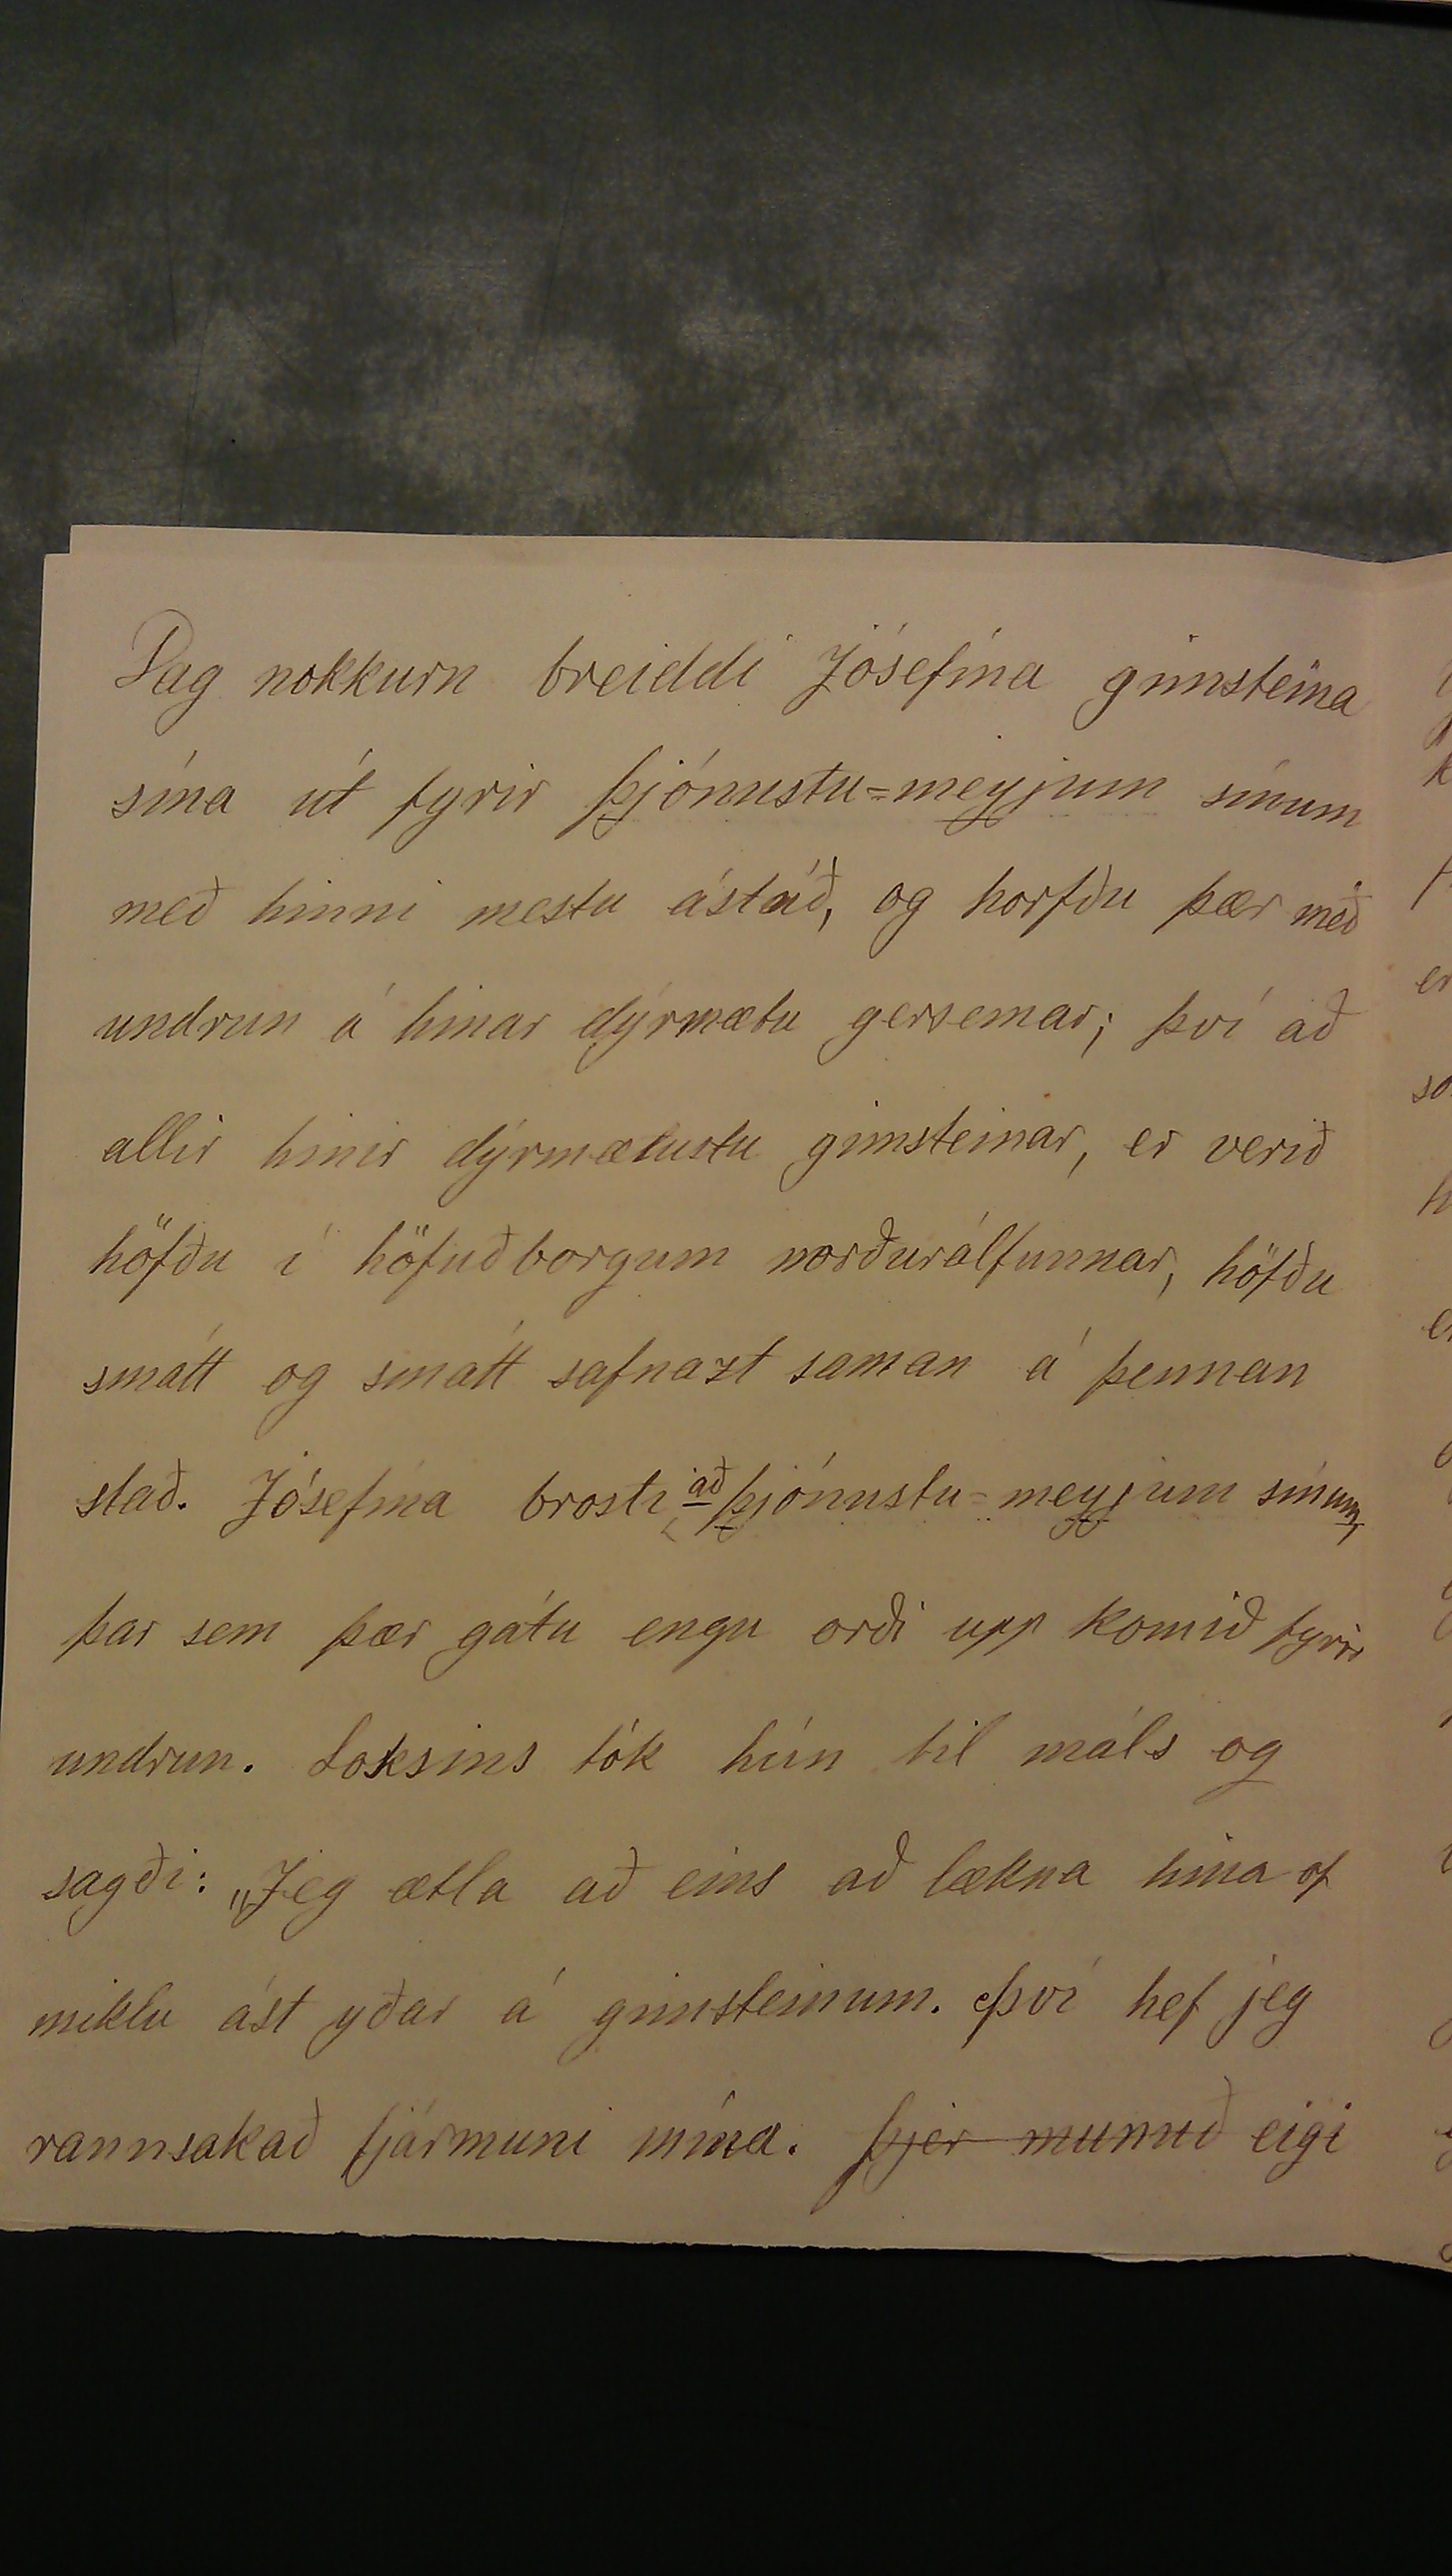 Dag nokkurn breiddi Jósefína gimsteina
sína út fyrir þjónustu=meyjum sínum
með hinni mestu ástúð, og horfðu þær með
undrun á hinar dýrmætu gersemar; því að
allir hinir dýrmætustu gimsteinar, er verið
höfðu í höfuðborgum norðurálfunnar, höfðu
smátt og smátt safnazt saman á þennan
stað. Jósefína brosti að þjónustu=meyjum sínum,
þar sem þær gátu engu orði upp komið fyrir
undrun. Loksins tók hún til máls og
sagði: „Jeg ætla að eins að lækna hina of
miklu ást yðar á gimsteinum. Því hef jeg
rannsakað fjármuni mína. Þjer munuð eigi